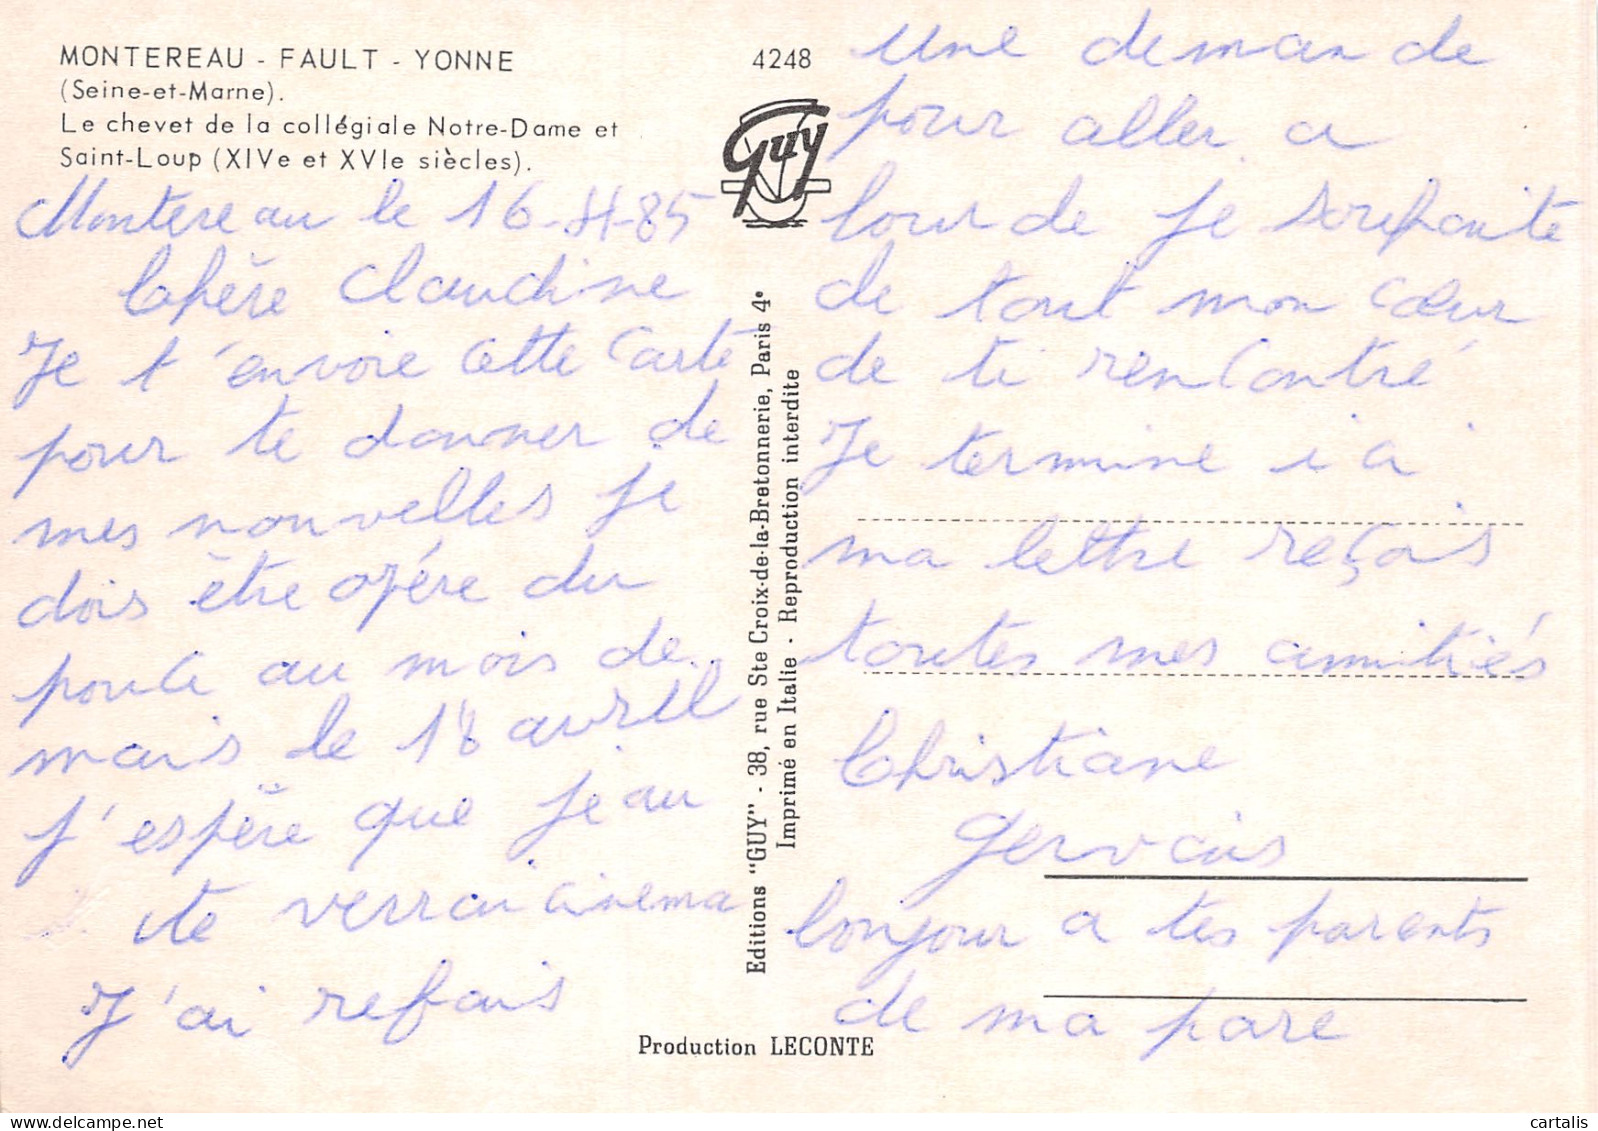 MONTEREAU - FAULT - YONNE
(Seine-et-Marne).
Le chevet de la collégiale Notre-Dame et
Saint-Loup (XIVe et XVIe siècles).
4248
Guy
Montereau le 16-4-85
Chère Claudine
Je t'envoie cette carte
pour te donner de
mes nouvelles je
dois être opére du
pouce au mois de
mais le 18 avril
j'espère que je au
te verrai cinema
J'ai refais
Editions "GUY" - 38, rue Ste Croix-de-la-Bretonnerie, Paris 4e
Imprimé en Italie - Reproduction interdite
Production LECONTE
une demande
pour aller a
lourde je souhaite
de tout mon cœur
de ti rencontré
Je termine i a
ma lettre reçois
toutes mes amitiés
Christiane
Gervais
bonjour a tes parents
de ma pare
cartalis